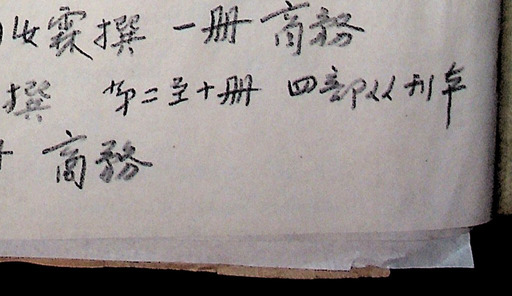 霖撰 一册 商務
撰 第二至十册 四部丛刊本
商務